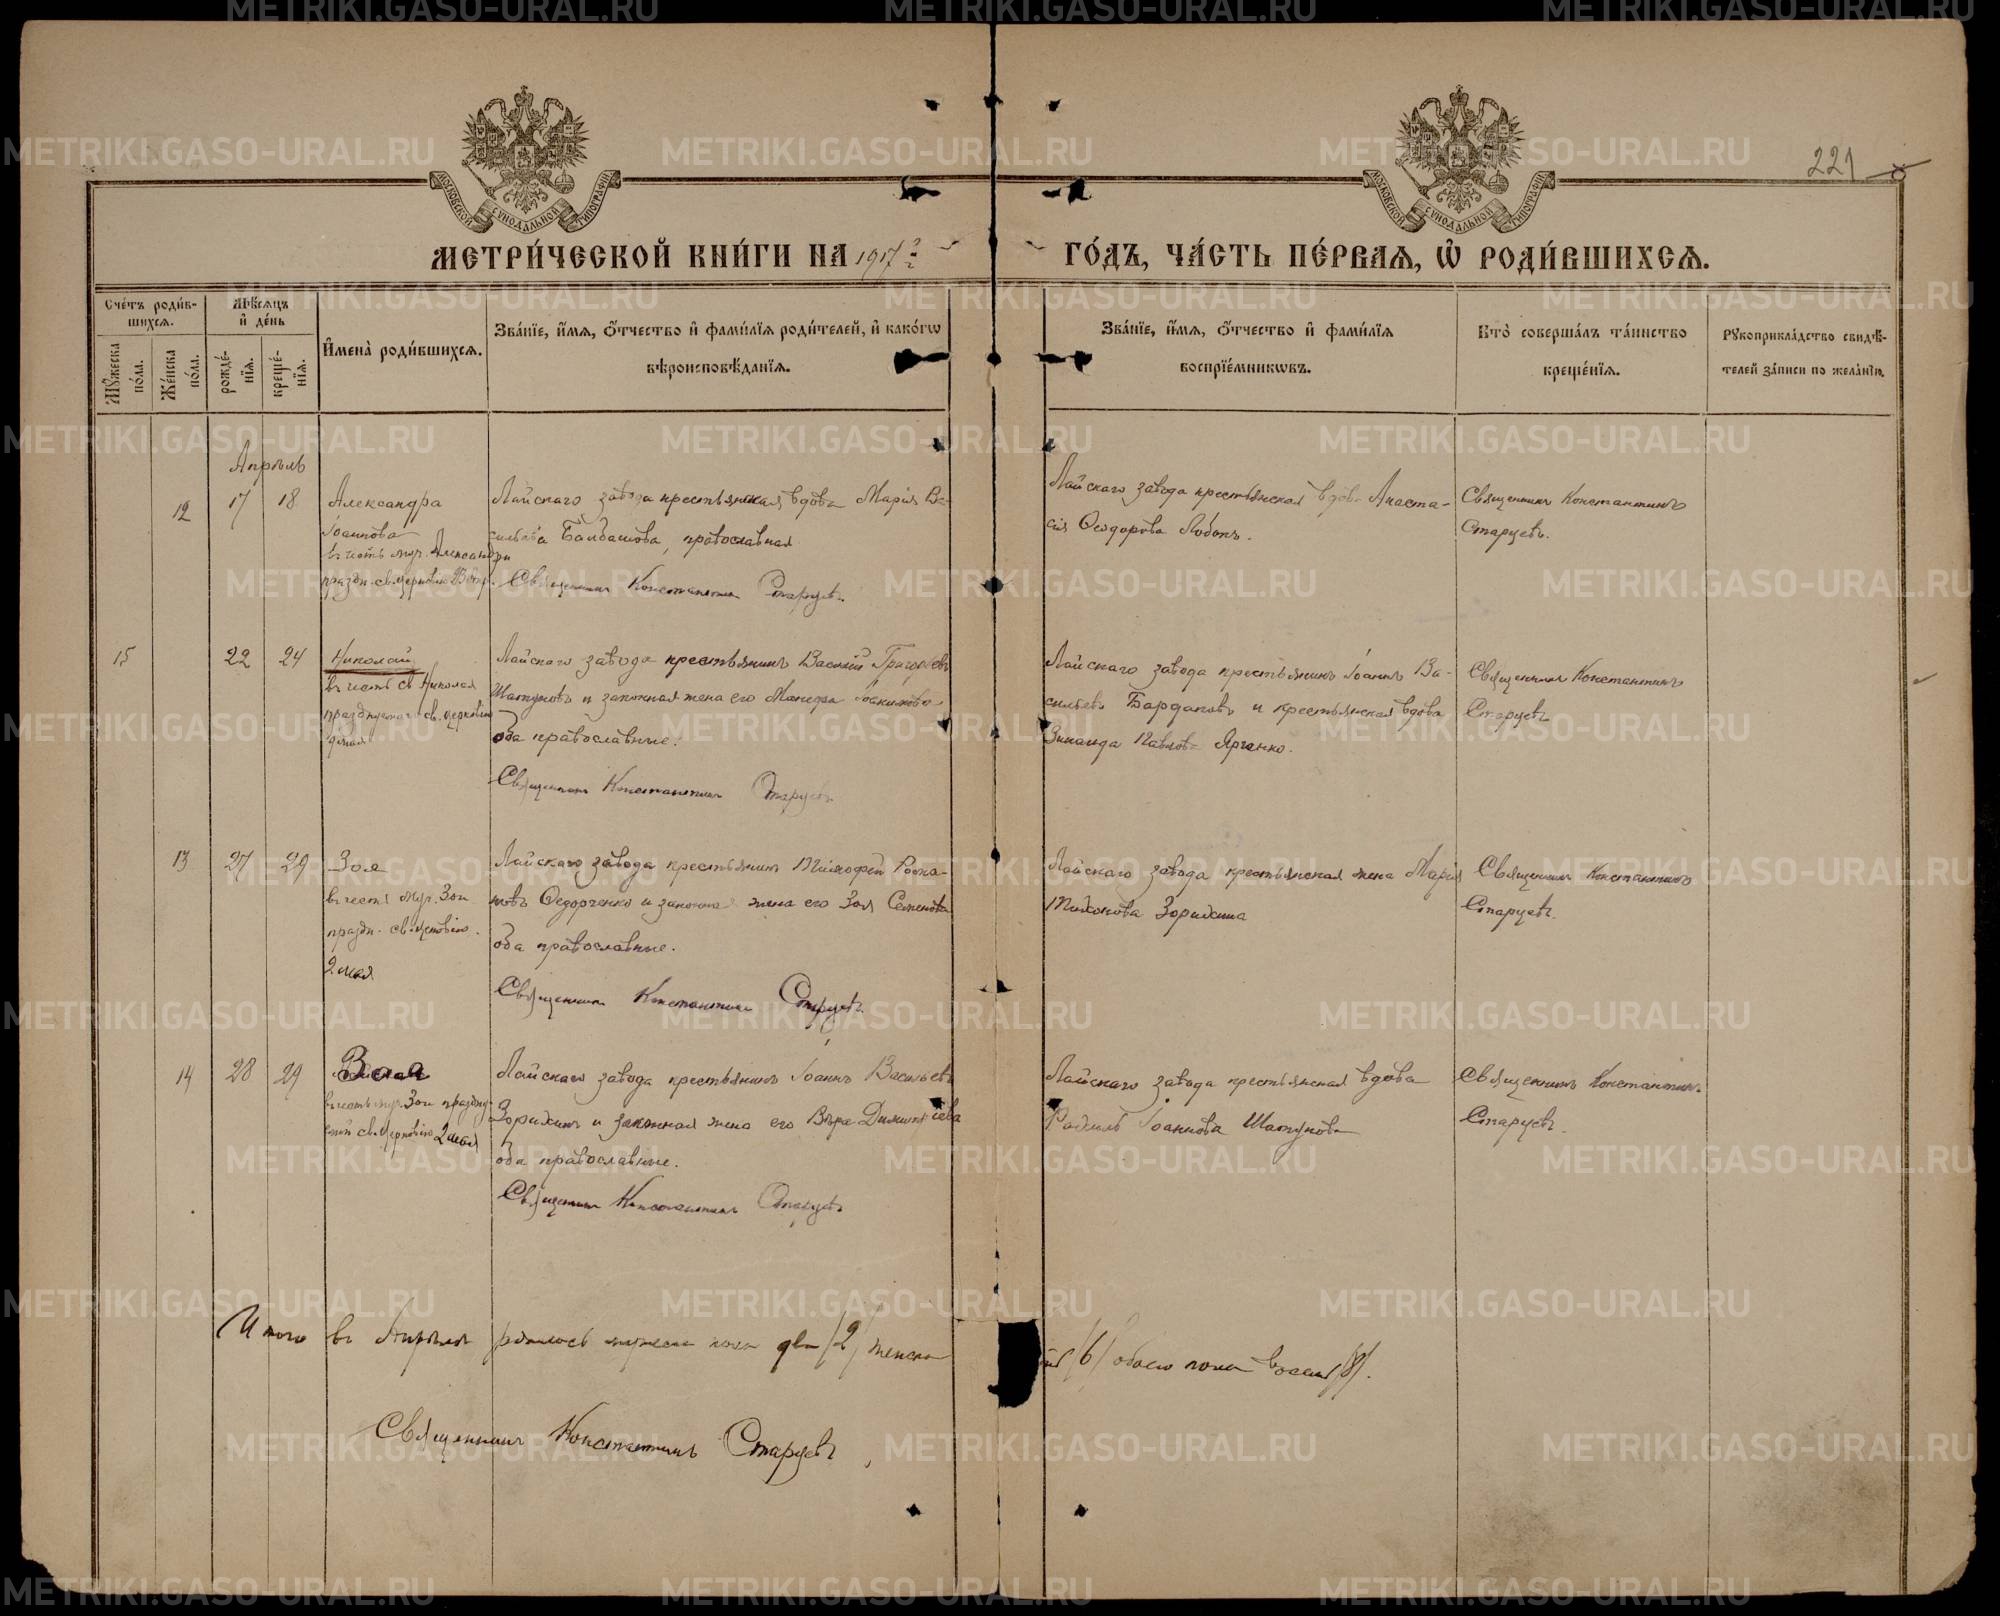 221
МОСКОВСКОЙ СУНОДАЛЬНОЙ ТИПОГРАФІИ
МОСКОВСКОЙ СУНОДАЛЬНОЙ ТИПОГРАФІИ
МЕТРИ́ЧЕСКОЙ КНИ́ГИ НА 1917
ГО́ДЪ, ЧА́СТЬ ПЕ́РВАѦ, Ѡ҆ РОДИ́ВШИХСѦ.
Сче́тъ роди́в-
шихсѧ.
Мꙋ́жеска
по́ла.
Же́нска
по́ла.
Мѣ́сѧцъ
и҆ де́нь
рожде́-
нїѧ.
креще́-
нїѧ.
И҆мена̀ роди́вшихсѧ.
Зва́нїе, и҆́мѧ, ѻ҆́тчество и҆ фами́лїѧ роди́телей, и҆ како́гѡ
вѣроисповѣ́данїѧ.
Зва́нїе, и҆́мѧ, ѻ҆́тчество и҆ фами́лїѧ
воспрїе́мникѡвъ.
Кто̀ соверша́лъ та́инство
креще́нїѧ.
Рꙋкоприкла́дство свидѣ́-
телей за́писи по жела́нїю.
Апрѣль
12 17 18
Александра
Іоаннова
въ честь муч. Александры
праздн. св. церковію
Лайскаго завода крестьянская вдова Марія Ва-
сильева православная
Священникъ Константинъ Старцевъ.
Лайскаго завода крестьянская вдова Анаста-
сія Ѳеодорова
Священникъ Константинъ
Старцевъ.
15 22 24
Николай
въ честь св. Николая
празднуемаго св. церковію
9 мая
Лайскаго завода крестьянинъ Василій Григорьевъ
Шатуновъ и законная жена его
оба православные.
Священникъ Константинъ Старцевъ
Лайскаго завода крестьянинъ Іоаннъ Ва-
сильевъ и крестьянская вдова
Зинаида Павлова
Священникъ Константинъ
Старцевъ
13 27 29
Зоя
въ честь муч. Зои
праздн. св. церковію
2 мая
Лайскаго завода крестьянинъ Тимофей Рома-
новъ Ѳедорченко и законная жена его Зоя Семенова
оба православные.
Священникъ Константинъ Старцевъ.
Лайскаго завода крестьянская жена Марія
Тихонова Зорихина
Священникъ Константинъ
Старцевъ.
14 28 29
Зоя
въ честь муч. Зои праздну-
емой св. церковію 2 мая
Лайскаго завода крестьянинъ Іоаннъ Васильевъ
Зорихинъ и законная жена его Вѣра Димитріева
оба православные.
Священникъ Константинъ Старцевъ
Лайскаго завода крестьянская вдова
Іоаннова Шатунова
Священникъ Константинъ
Старцевъ.
Итого въ Апрѣлѣ родилось мужеска пола два /2/ женска
/6/ обоего пола восемь /8/.
Священникъ Константинъ Старцевъ
METRIKI.GASO-URAL.RU